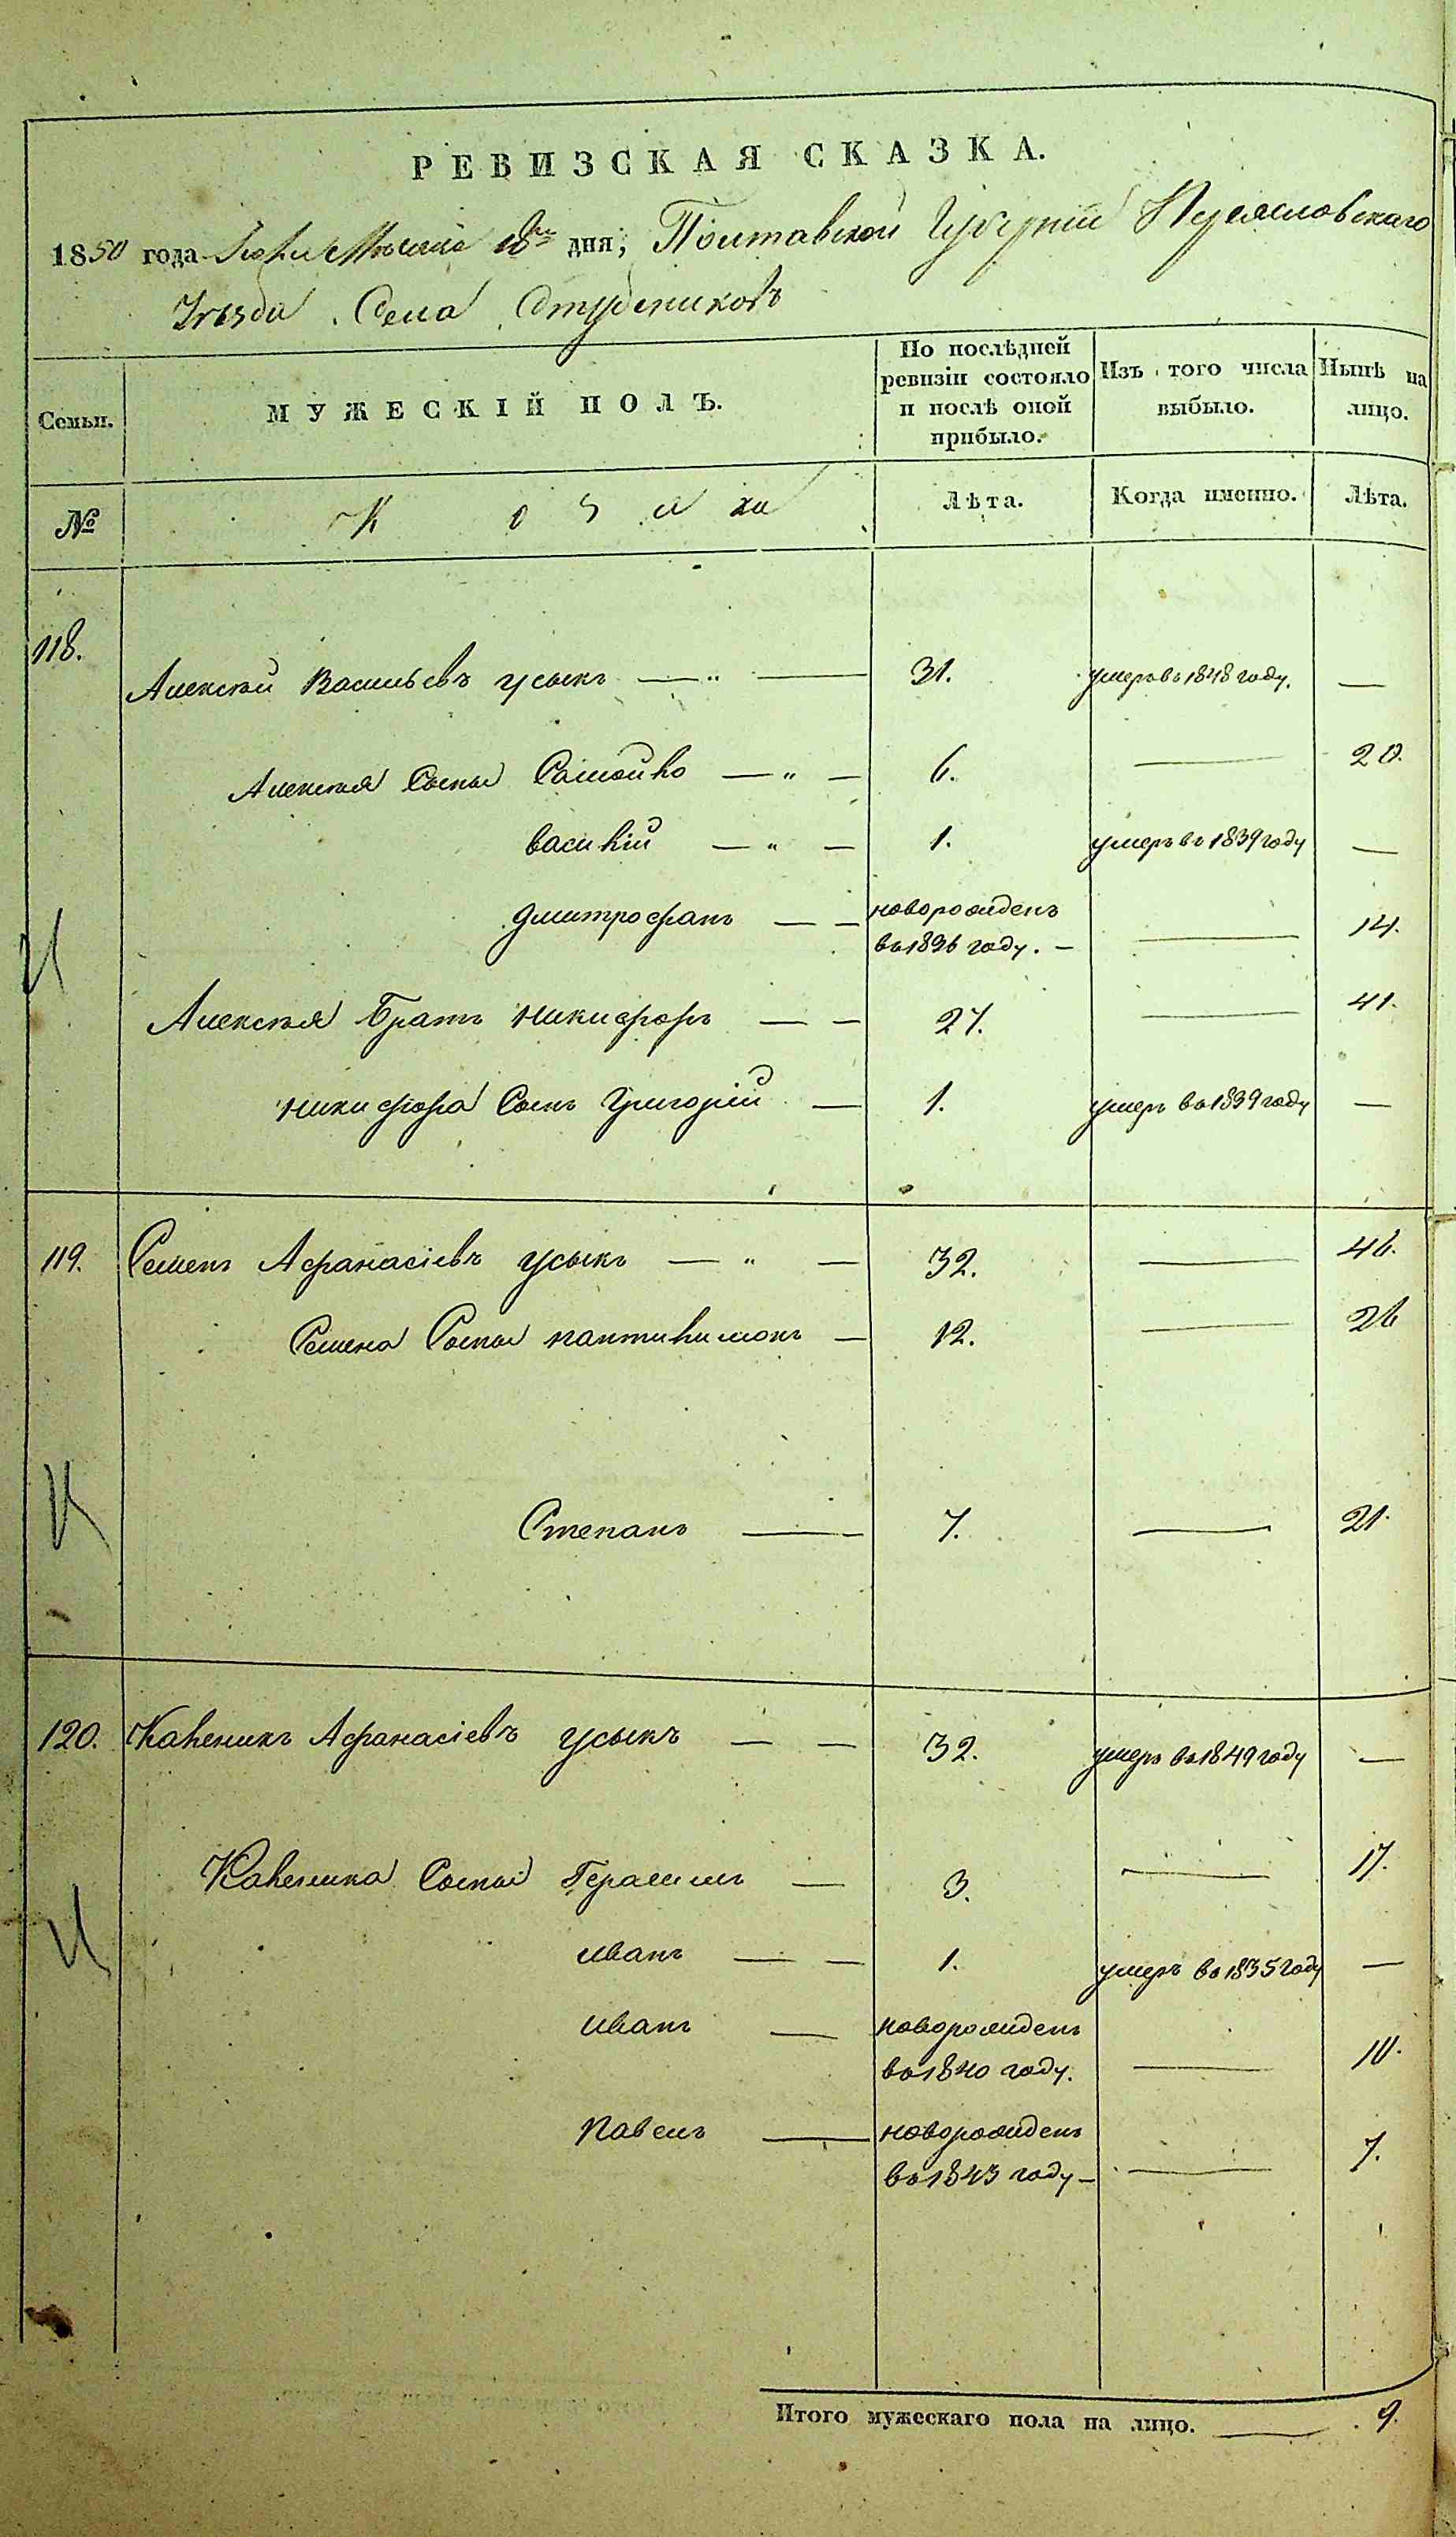 РЕВИЗСКАЯ СКАЗКА.
1850 года Мѣсяца дня, Полтавской Губерніи Переясловскаго
Уѣзда Села Студениковъ
Семьи.
МУЖЕСКІЙ ПОЛЪ.
По послѣдней ревизіи состояло и послѣ оной прибыло.
Изъ того числа выбыло.
Нынѣ на лицо.
№
Козаки
Лѣта.
Когда именно.
Лѣта.
118.
Алексѣй Васильевъ усыкъ — „ — 31. умеръ въ 1848 году. —
Алексѣя Сыны Самойло — „ — 6. — 20.
василій — „ — 1. умеръ въ 1839 году —
дмитрофанъ — — новорожденъ
въ 1836 году. — — 14.
Алексѣя Братъ никифоръ — — 27. — 41.
никифора Сынъ Григорій — 1. умеръ въ 1839 году —
119. Семенъ Афанасіевъ усыкъ — „ — 32. — 46.
Семена Сыны пантилимонъ — 12. — 26
Степанъ — 7. — 21.
120. Каленикъ Афанасіевъ усыкъ — — 32. умеръ въ 1849 году —
Каленика Сыны Герасимъ — 3. — 17.
иванъ — — 1. умеръ въ 1835 году —
иванъ — новорожденъ
въ 1840 году. — 10.
павелъ — новорожденъ
въ 1843 году — — 7.
Итого мужескаго пола на лицо. — 9.